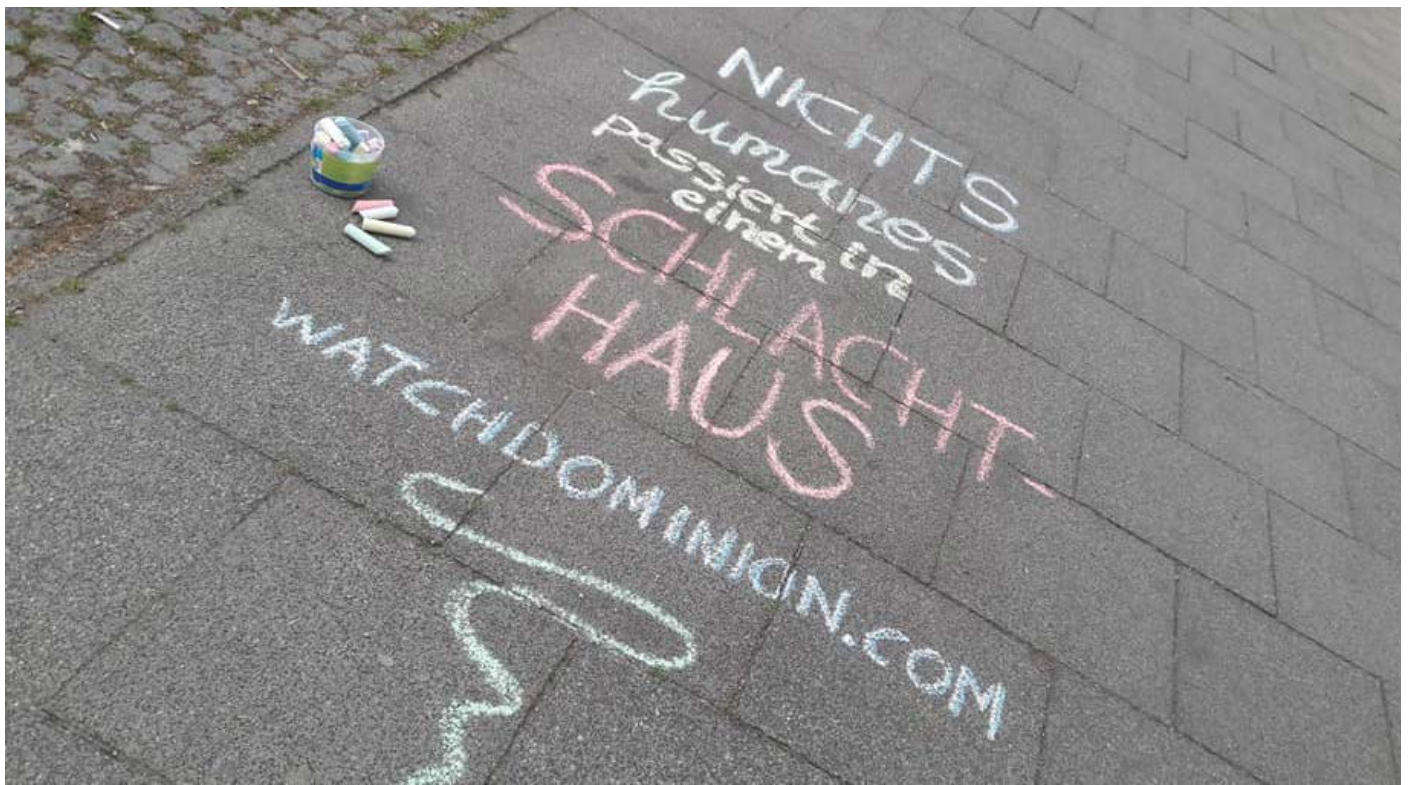 NICHTS
humanes
passiert in
einem
SCHLACHT-
HAUS
WATCHDOMINION.COM